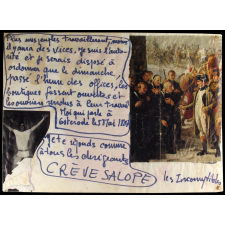 Plus mes peuples travailleront, moins
il y aura des vices. Je suis l'auto-
rité et je serais disposé à
ordonner que le dimanche
passé l'heure des offices, les
boutiques fussent ouvertes et
les ouvriers rendus à leur travail
Moi qui parle à
Osterode le 5 Mai 1807
Je te réponds comme
à tous les dirigeants
CRÈVE SALOPE
les Incorruptibles